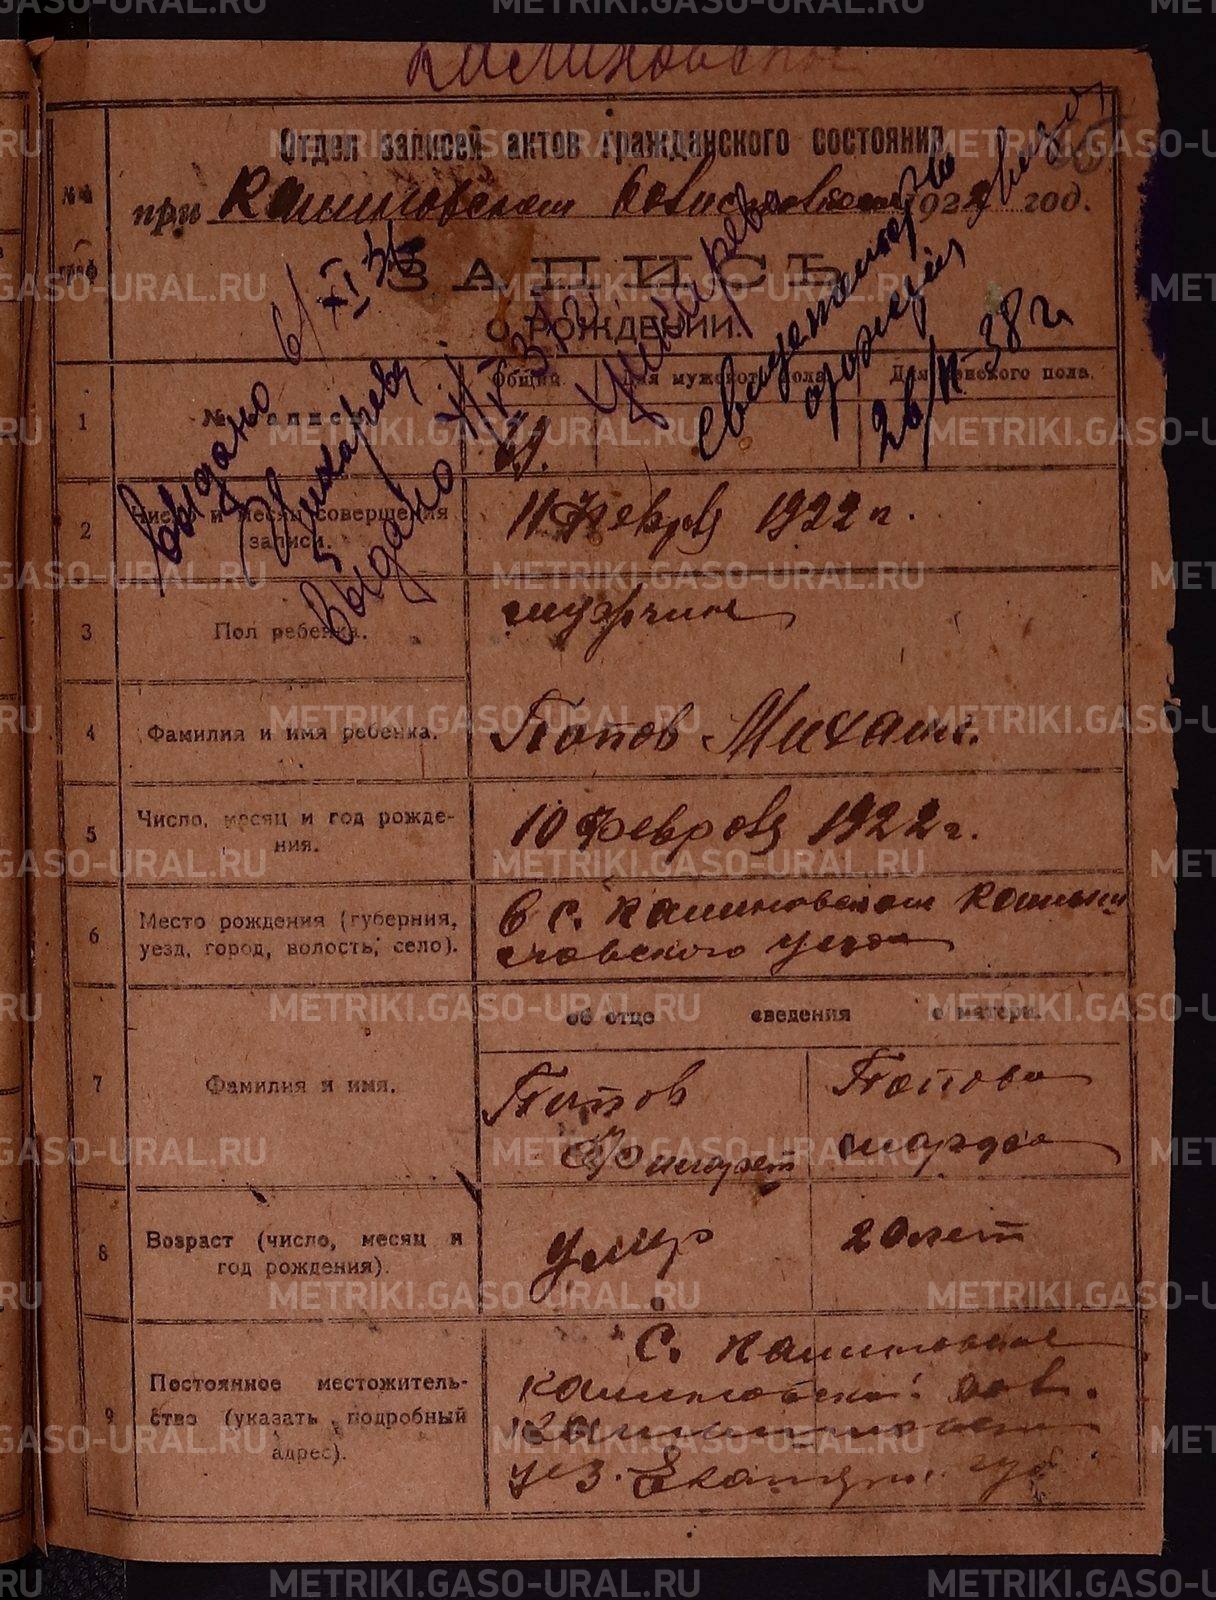 Калиновское
Отдел записей актов гражданского состояния
№№ граф
при Калиновском 1922 год.
ЗАПИСЬ
О РОЖДЕНИИ.
выдано 6/XI 34
выдано
Свидетельство
о рождении
26/II-38 г.
Общий. Для мужского пола. Для женского пола.
1 № записи
2 Число и месяц совершения
записи.
11 Февраля 1922 г.
3 Пол ребенка. мужчина
4 Фамилия и имя ребенка. Попов Михаил.
5 Число, месяц и год рожде-
ния.
10 Февраля 1922 г.
6 Место рождения (губерния,
уезд, город, волость, село).
в с. Калиновском Камыш
ловского уезда
об отце сведения о матери.
7 Фамилия и имя.
Попов
Филарет
Попова
8 Возраст (число, месяц и
год рождения).
умер
20 лет
9 Постоянное местожитель-
ство (указать подробный
адрес).
С. Калиновское
Калиновской вол.
Камышловск
уез. Екатер. губ
METRIKI.GASO-URAL.RU